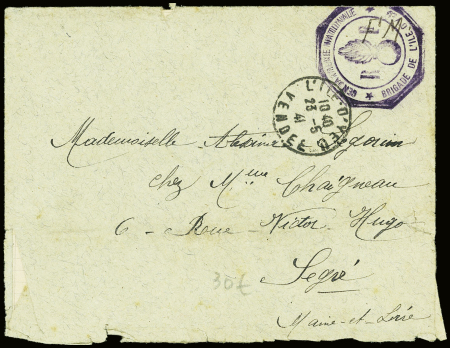 GENDARMERIE NATIONALE
BRIGADE DE L'ILE
F.M
L'ILE-D'YEU
10 40
23 -5
41
VENDÉE
Mademoiselle
chez Mme Chaigneau
6 - Rue Victor Hugo
Segré
Maine-et-Loire
30€